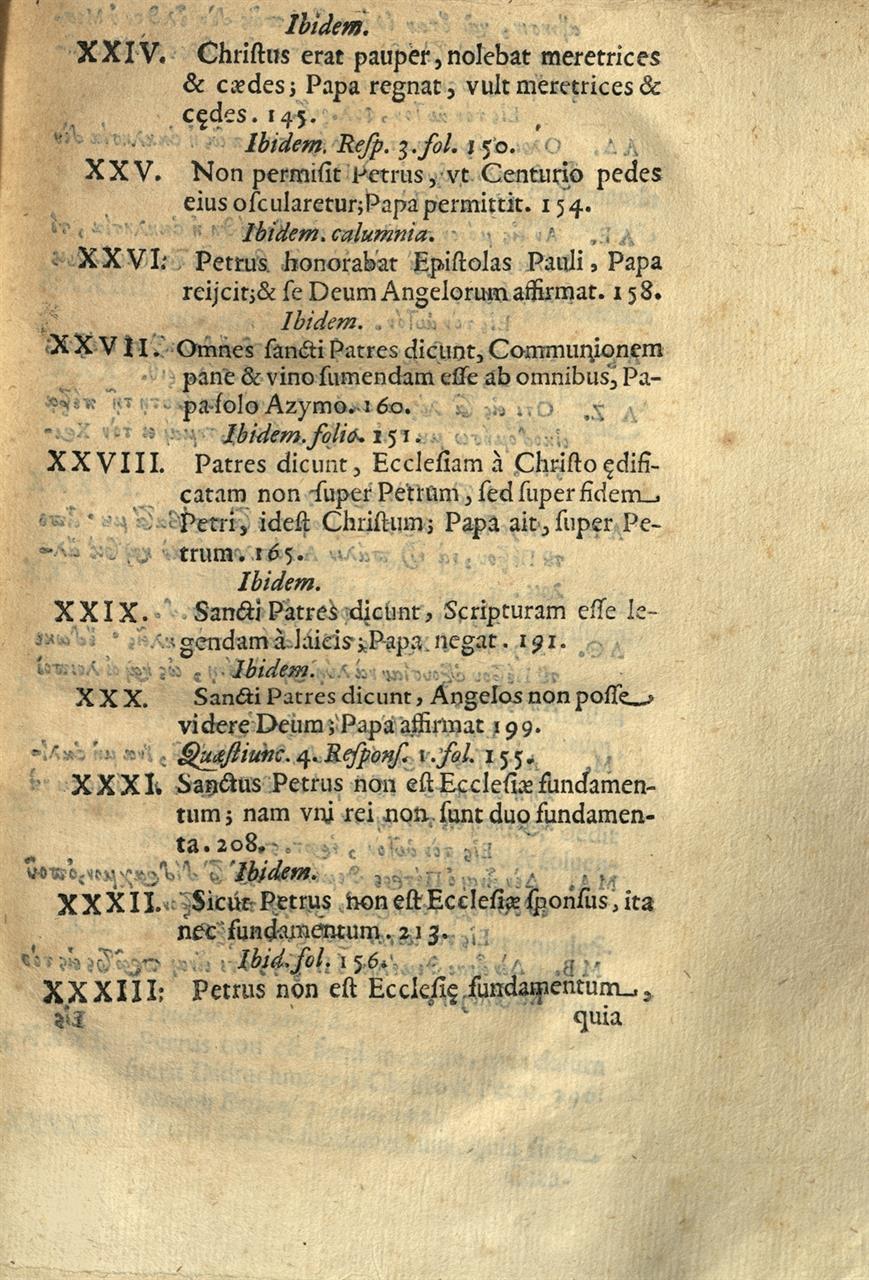 Ibidem.
XXIV. Chriſtus erat pauper, nolebat meretrices
& cædes; Papa regnat, vult meretrices &
cędes. 145.
Ibidem. Reſp. 3. fol. 150.
XXV. Non permiſit Petrus, vt Centurio pedes
eius oſcularetur; Papa permittit. 154.
Ibidem. calumnia.
XXVI. Petrus honorabat Epiſtolas Pauli, Papa
reijcit; & ſe Deum Angelorum affirmat. 158.
Ibidem.
XXVII. Omnes ſancti Patres dicunt, Communionem
pane & vino ſumendam eſſe ab omnibus, Pa-
pa ſolo Azymo. 160.
Ibidem. folio. 151.
XXVIII. Patres dicunt, Eccleſiam à Chriſto ędifi-
catam non ſuper Petrum, ſed ſuper fidem
Petri, ideſt Chriſtum; Papa ait, ſuper Pe-
trum. 165.
Ibidem.
XXIX. Sancti Patres dicunt, Scripturam eſſe le-
gendam à laicis; Papa negat. 191.
Ibidem.
XXX. Sancti Patres dicunt, Angelos non poſſe
videre Deum; Papa affirmat 199.
Quæſtiunc. 4. Reſponſ. 1. fol. 155.
XXXI. Sanctus Petrus non eſt Eccleſiæ fundamen-
tum; nam vni rei non ſunt duo fundamen-
ta. 208.
Ibidem.
XXXII. Sicut Petrus non eſt Eccleſiæ ſponſus, ita
nec fundamentum. 213.
Ibid. fol. 156.
XXXIII. Petrus non eſt Eccleſię fundamentum,
quia